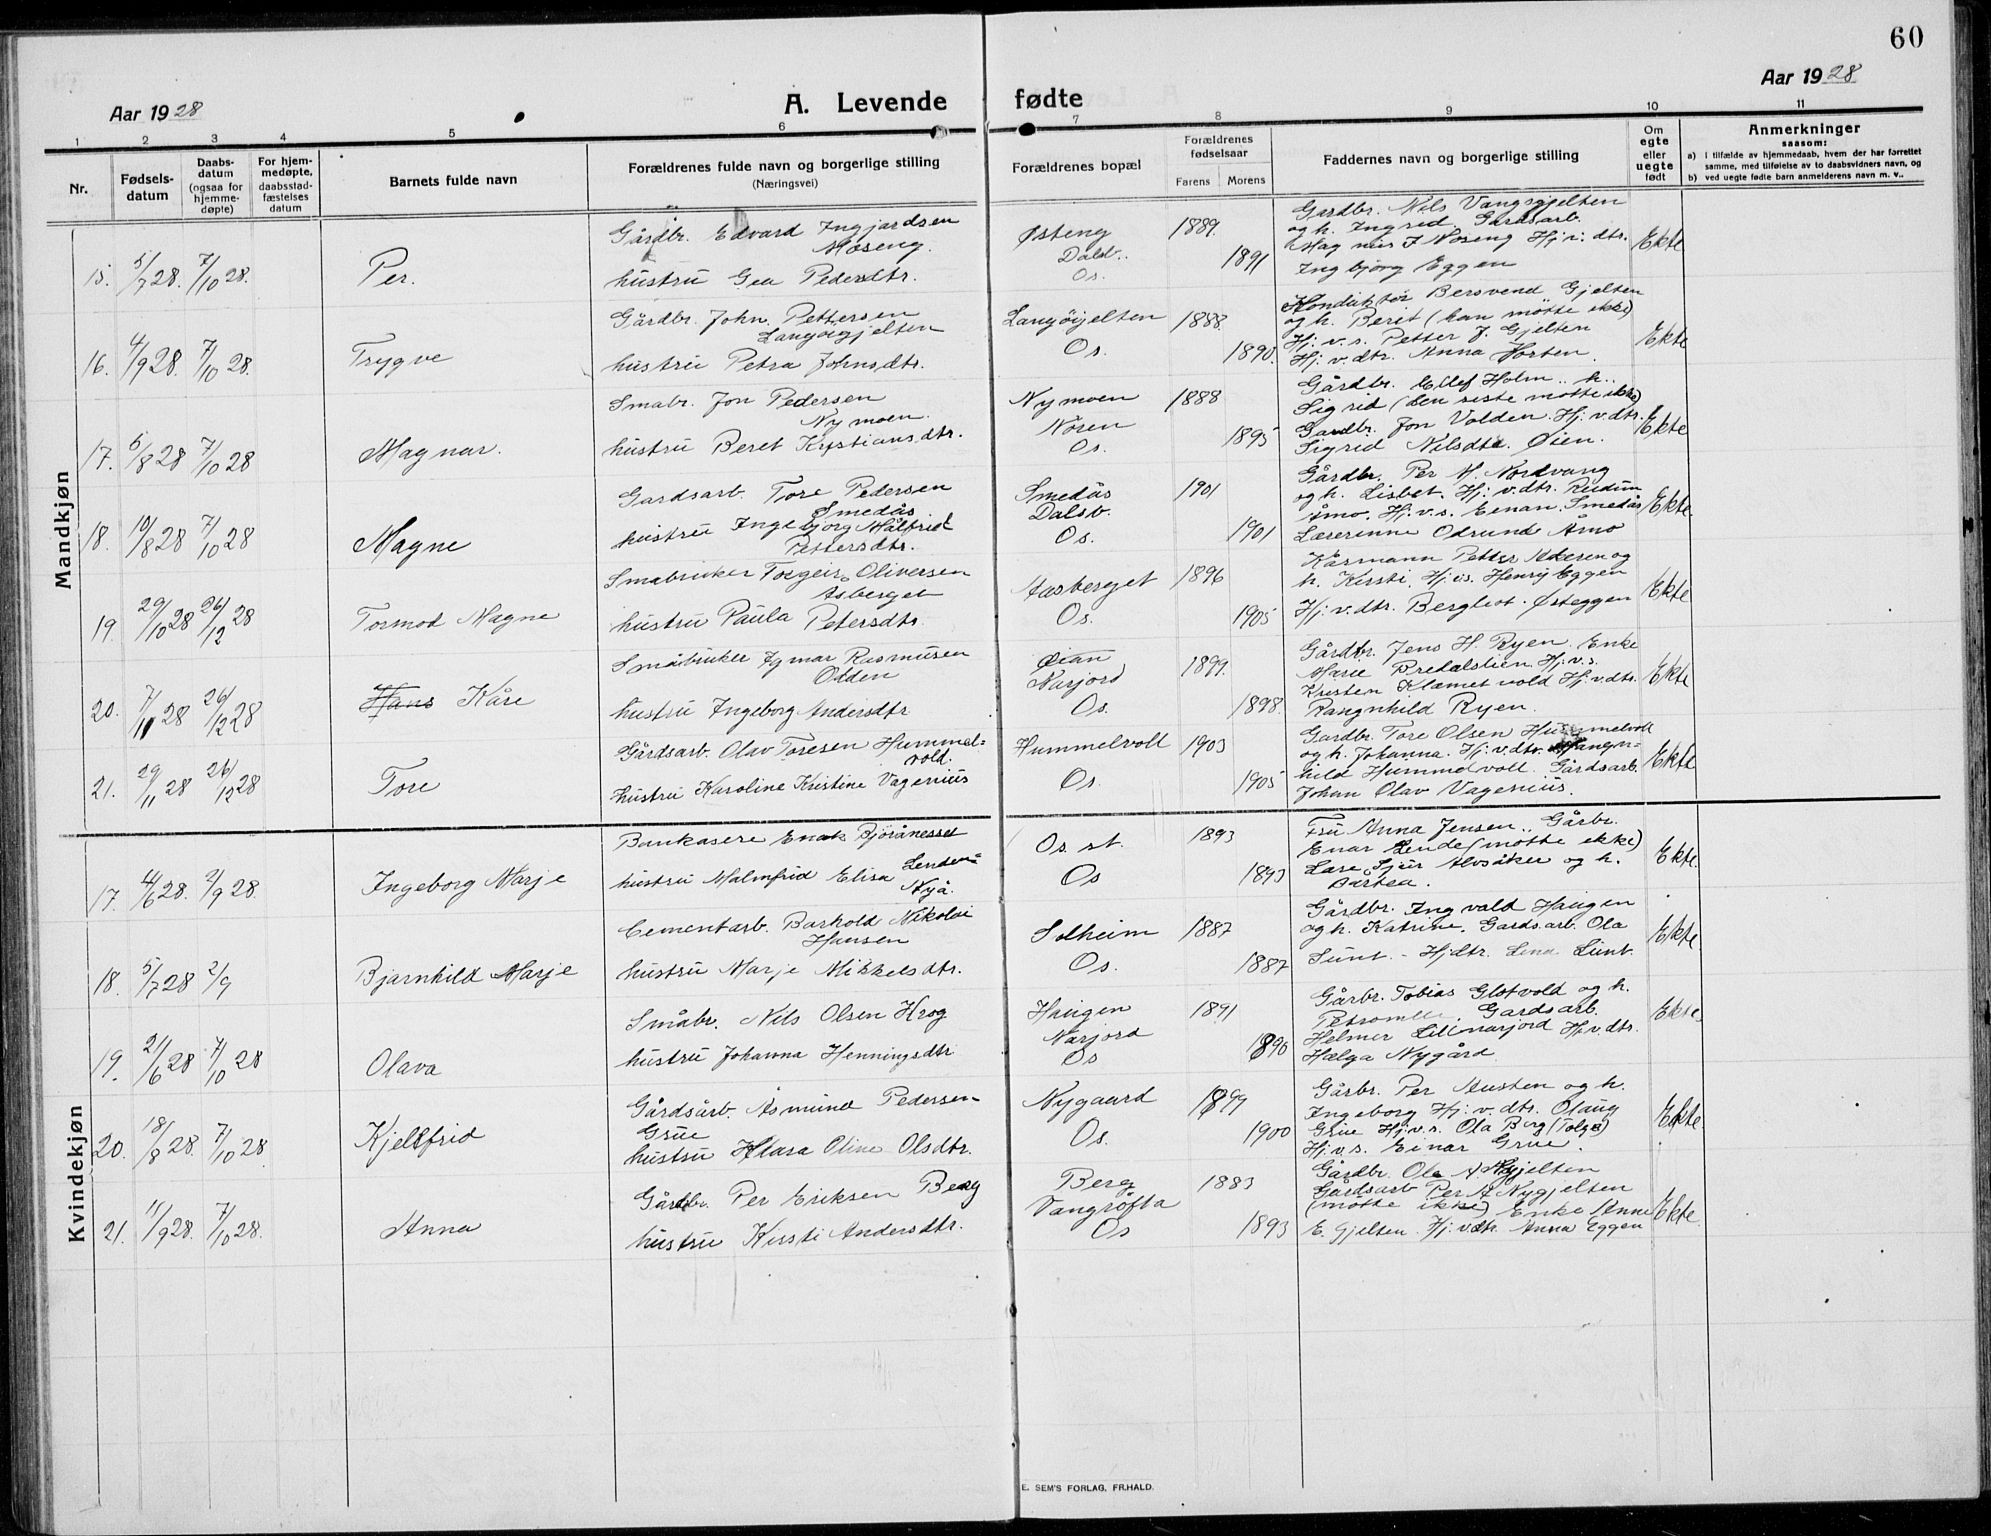 60
Aar 1928
A. Levende fødte
Aar 1928
1 2 3 4 5 6 7 8 9 10 11
Nr.
Fødsels-
datum
Daabs-
datum
(ogsaa for
hjemme-
døpte)
For hjem-
medøpte,
daabsstad-
fæstelses
datum
Barnets fulde navn
Forældrenes fulde navn og borgerlige stilling
(Næringsvei)
Forældrenes bopæl
Forældrenes
fødselsaar
Farens Morens
Faddernes navn og borgerlige stilling
Om
egte
eller
uegte
født
Anmerkninger
saasom:
a) i tilfælde av hjemmedaab, hvem der har forrettet
samme, med tilføielse av to daabsvidners navn, og
b) ved uegte fødte barn anmelderens navn m. v..
Mandkjøn
15. 5/7 28. 7/10 28. Per.
Gårdbr. Edvard Ingjardsen
Moseng.
hustru Gea Pedersdtr.
Østeng
Dalsb.
Os.
1889.
1891
Gardbr. Nils Vangsgjelten
og h. Ingrid. Gardsarb.
Magnus J Moseng Hj. v. dtr.
Ingbjørg Eggen
Ekte
16. 4/9 28. 7/10 28. Trygve
Gårdbr. John Pettersen
Langøigjelten
hustru Petra Johnsdtr.
Langøigjelten
Os.
1888.
1890.
Konduktør Bersvend Gjelten
og h. Beret (han møtte ikke)
Hj. v. s. Petter J. Gjelten
Hj. v. dtr. Anna Horten.
Ekte
17. 5/8 28 7/10 28 Magnar.
Smabr. Jon Pedersen
Nymoen.
hustru Beret Kristiansdtr.
Nymoen
Nøren
Os.
1888
1895
Gårdbr. Ellef Holm .. h..
Sigrid (den siste møtte ikke)
Gardbr. Jon Volden. Hj: v. dtr.
Sigrid Nilsdtr. Øien.
Ekte
18. 19/8 28 7/10 28 Magne
Gardsarb. Tore Pedersen
Smedås.
hustru Ingebjørg Målfrid
Pettersdtr.
Smedås
Dalsb.
Os.
1901
1901
Gårdbr. Per M. Nordvang
og h. Lisbet. Hj: v. dtr. Reidun
Åmo. Hj: v. s. Einan Smedås
Læserinne Odrund Åmo
Ekte.
19. 29/10 28 26/12 28 Tormod Magne
Smabruker Torgeir Oliversen
Asberget
hustru Paula Petersdtr.
Aasberget
Os.
1896
1905
h. Kirsti. Hj. v. s. Henry Eggen
Hj: v. dtr. Bergliot Østeggen
Ekte
20. 7/11 28 26/12 28 Hans Kåre
Småbruker Ingmar Rasmusen
Olden
hustru Ingeborg Andersdtr
Øian
Narjord
Os.
1899.
1898.
Gårdbr. Jens H. Ryen. Enke
Marie Bredalslien. Hj: v. s.
Kristen Klemetvold Hj: v. dtr.
Rangnhild Ryen.
Ekte
21. 29/11 28 26/12 28 Tore
Gårdsarb. Olav Toresen Hummel=
vold.
hustru Karoline Kristine Vagenius
Hummelvoll
Os.
1903
1905
Gardbr. Tore Olsen Hummelvoll
og h. Johanna. Hj: v. dtr. Rangn=
hild Hummelvoll. Gårdsarb.
Johan Olav Vagenius.
Ekte
Kvindekjøn
17. 4/6 28. 2/9 28. Ingeborg Marje
Bankasere Enok Bjørånesset
hustru Malmfrid Elisa Lender=
Nyå.
Os. st.
Os
1893
1893
Fru Anna Jensen.. Gårbr.
Enar Lende (møtte ikke)
Læse Sjur Alvsåker og h.
Ekte.
18. 5/7 28 2/9 Bjarnhild Marje
Cementarb. Barhold Nikolai
Hansen
hustru Marje Mikkelsdtr.
Solheim
Os.
1887
1887
Gårdbr. Ingvald Haugen
og h. Katrine. Gardsarb. Ola
Lunt. - Hj dtr. Lena Lunt.
Ekte
19. 21/6 28 7/10 28 Olava
Småbr. Nils Olsen Krog
hustru Johanna Henningsdtr
Haugen
Narjord
Os
1891
1890
Gårbr. Tobias Glotvold og h.
Petromille. Gardsarb.
Helmer Lillnarjord Hj. v. dtr.
Helga Nygård
Ekte
20. 18/8 28. 7/10 28 Kjellfrid
Gårdsarb. Åsmund Pedersen
Grue
hustru Klara Oline Olsdtr.
Nygaard
Os.
1899
1900
Gårbr. Per Austen og h.
Ingeborg Hj: v. dtr. Olaug
Grue Hj. v. s. Ola Berg (Tolga)
Hj. v. s. Einar Grue.
Ekte.
21. 11/9 28. 7/10 28. Anna
Gårdbr. Per Eriksen Berg
hustru Kirsti Andersdtr.
Berg
Vangrøfta
Os
1883
1893
Gårdbr. Ola A. Nygjelten
Gårdsarb Per A Nygjelten
(møtte ikke) Enke Anne
E. Gjelten. Hj: v. dtr. Anna Eggen
Ekte.
E. SEM'S FORLAG, FR.HALD.